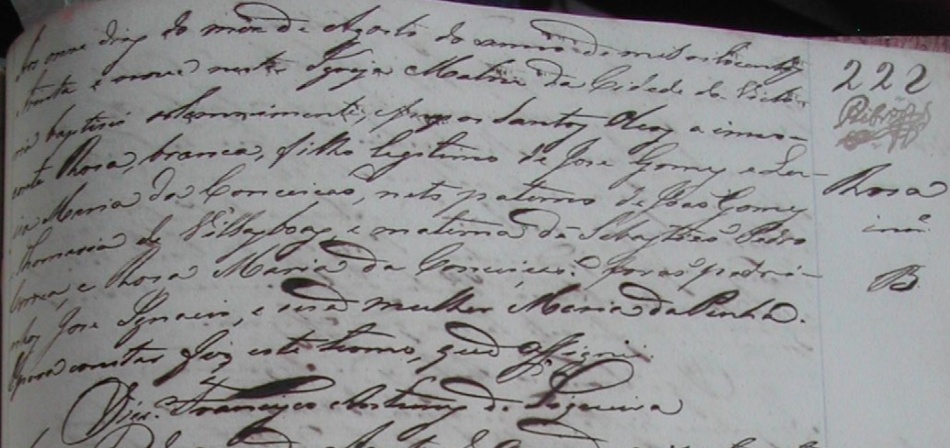 Aos onze dias do mês de Agosto do anno de mil oitocentos
trinta e nove nesta Igreja Matriz da Cidade da Victo-
ria baptisei solemnimente, e pus os Santos Oleos a inno-
cente Rosa, branca, filha legitima de Jose Gomes e
Maria da Conceicaõ, neta paterna de Joaõ Gomes
de Villasboas, e materna de Sebastiaõ Pedro
e Rosa Maria da Conceicaõ: foraõ padri-
nhos Jose Ignacio, e sua mulher Maria da Penha.
E para constar fiz este termo, que assignei.
Francisco Antunes de Siqueira
222
Rosa
inn.e
B